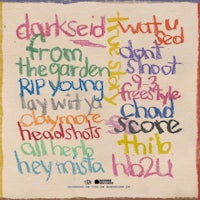 darkseid
from
the garden
RIP young
lay wit ya
claymore
headshots
all herb
hey mista
true story
wat u
sed
dont
shoot
9-3
freestyle
chad
score
thib
hb2u